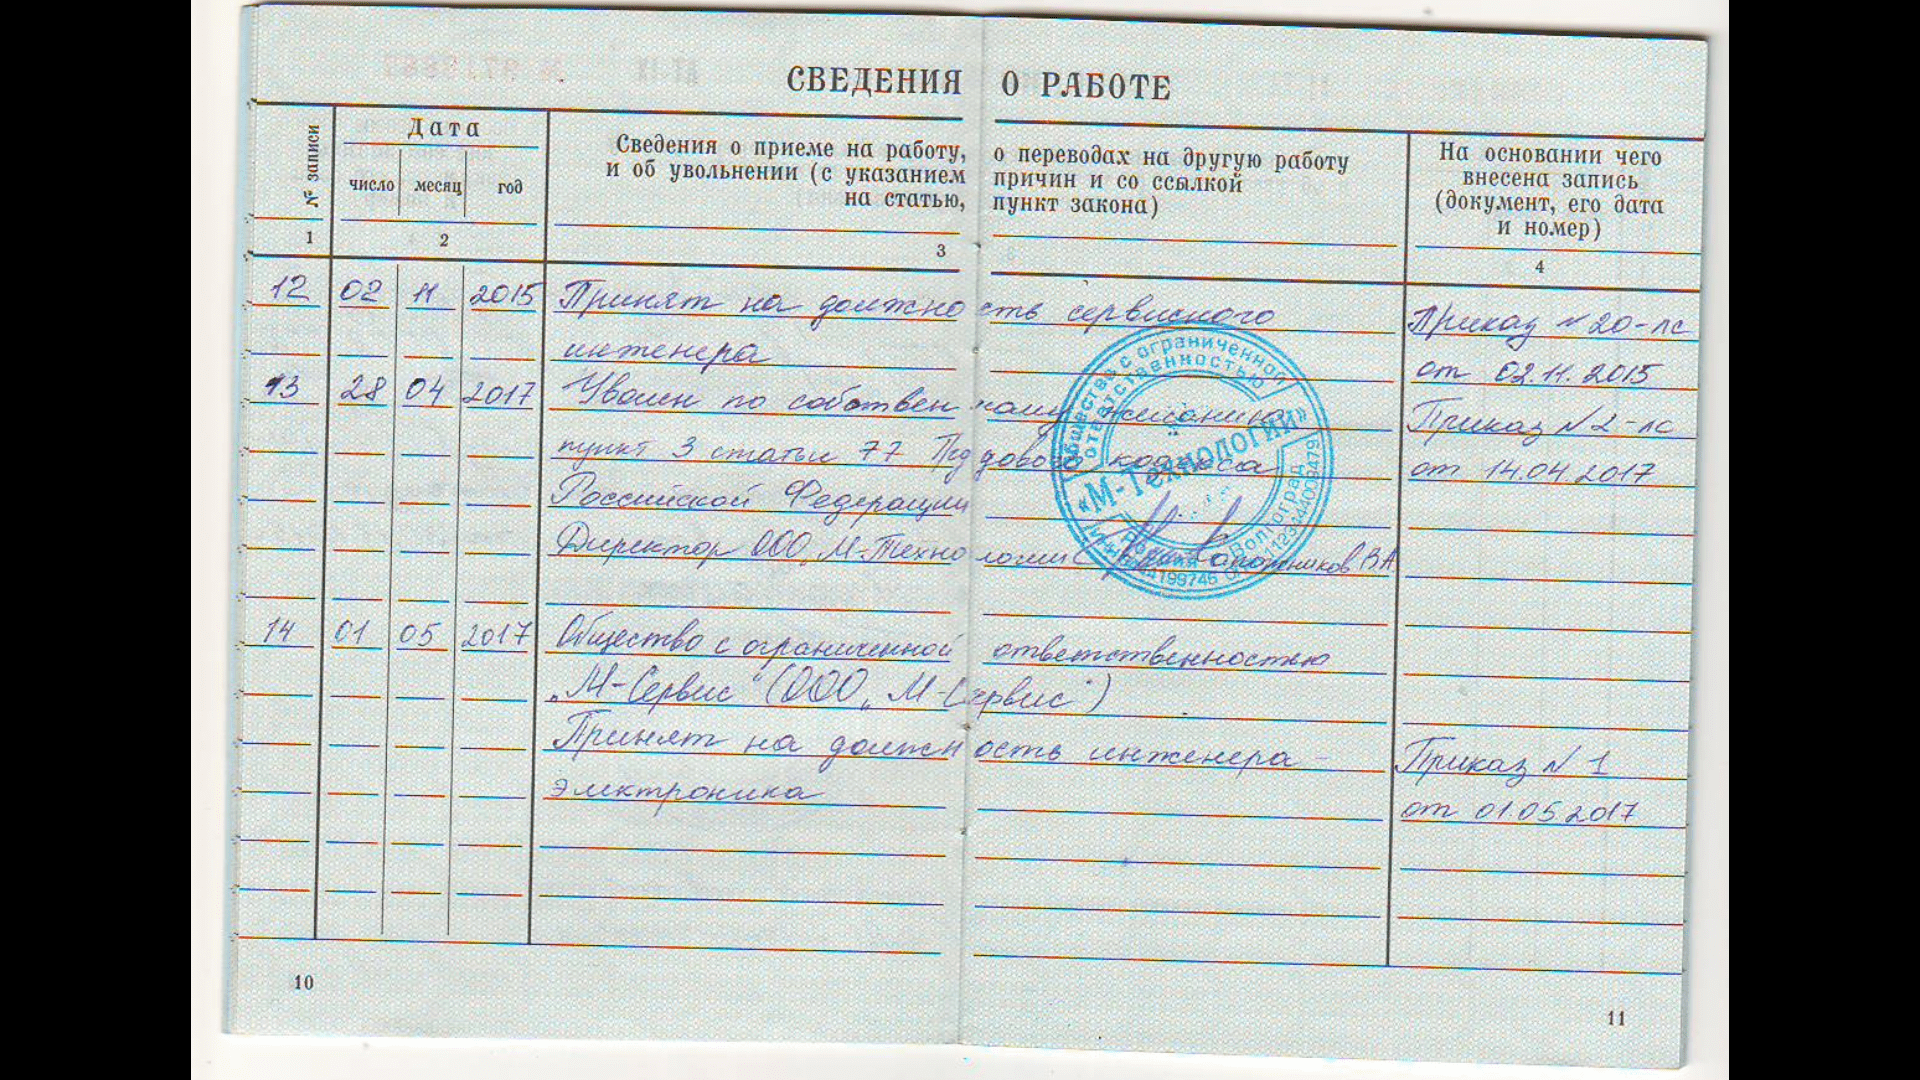 СВЕДЕНИЯ О РАБОТЕ
№ записи
Дата
число месяц год
Сведения о приеме на работу, о переводах на другую работу
и об увольнении (с указанием причин и со ссылкой
на статью, пункт закона)
На основании чего
внесена запись
(документ, его дата
и номер)
1 2 3 4
12 02 11 2015 Принят на должность сервисного Приказ №20-лс
инженера от 02.11.2015
13 28 04 2017 Уволен по собственному желанию Приказ №2-лс
пункт 3 статьи 77 Трудового кодекса от 14.04.2017
Российской Федерации
Директор ООО „М-Технологии
В А
Общество с ограниченной
ответственностью
«М-Технологии»
Волгоград
14 01 05 2017 Общество с ограниченной ответственностью
„М-Сервис“ (ООО „М-Сервис“)
Принят на должность инженера - Приказ № 1
электроника от 01.05.2017
10
11